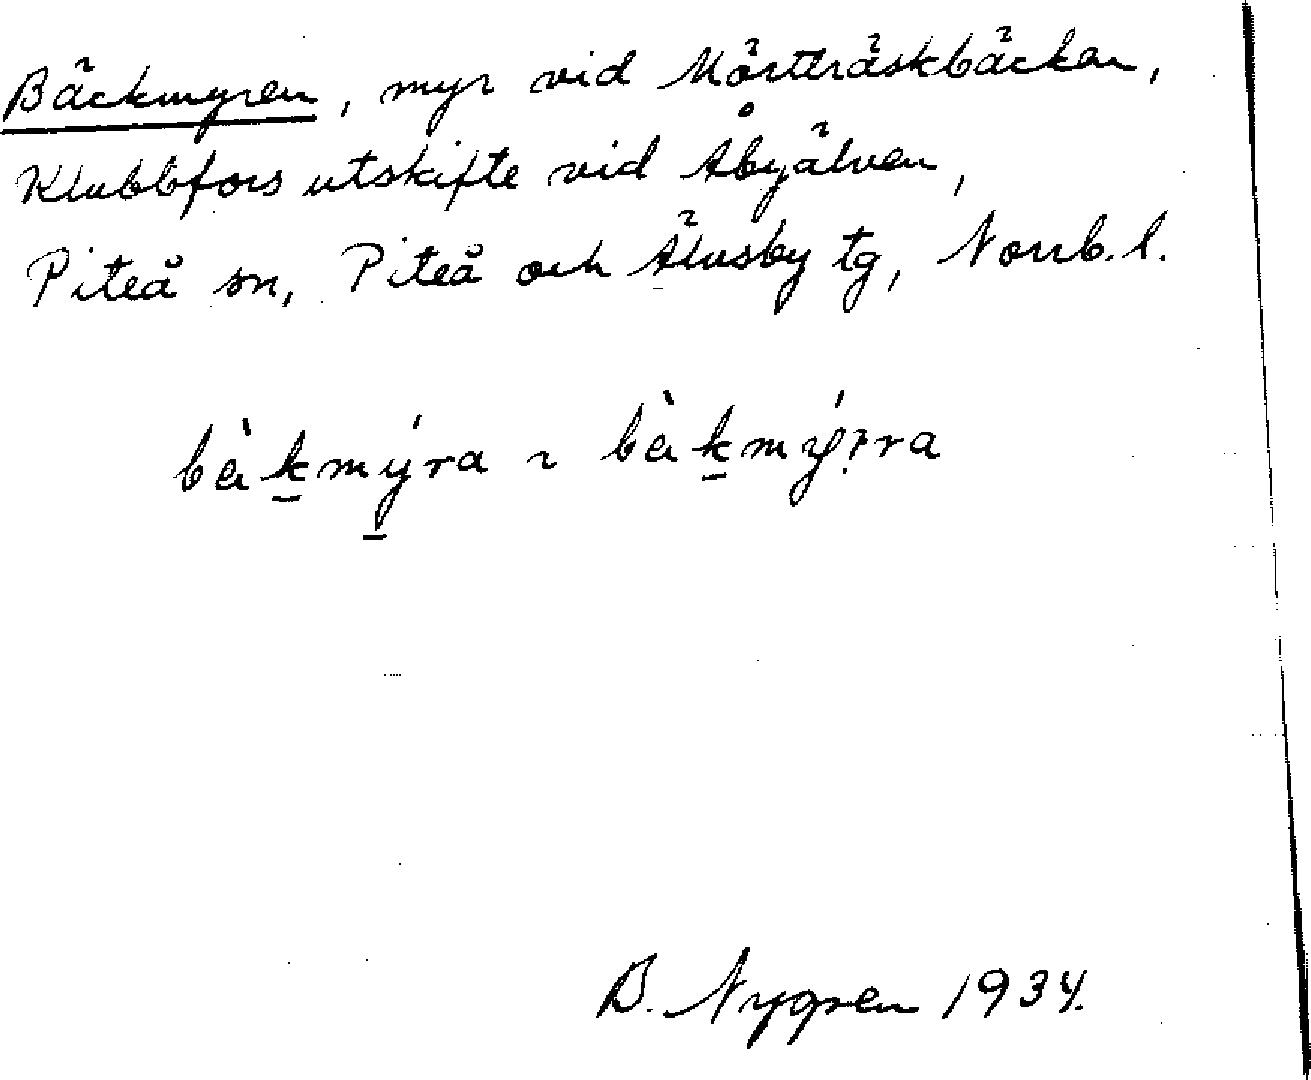 Bäckmyren, myr vid Mörtträskbäcken,
Klubbfors utskifte vid Åbyälven,
Piteå sn, Piteå och Älvsby tg, Norrb. l.
bàk̲mý̲ra ~ bàk̲mý?ra
B. Nygren 1934.